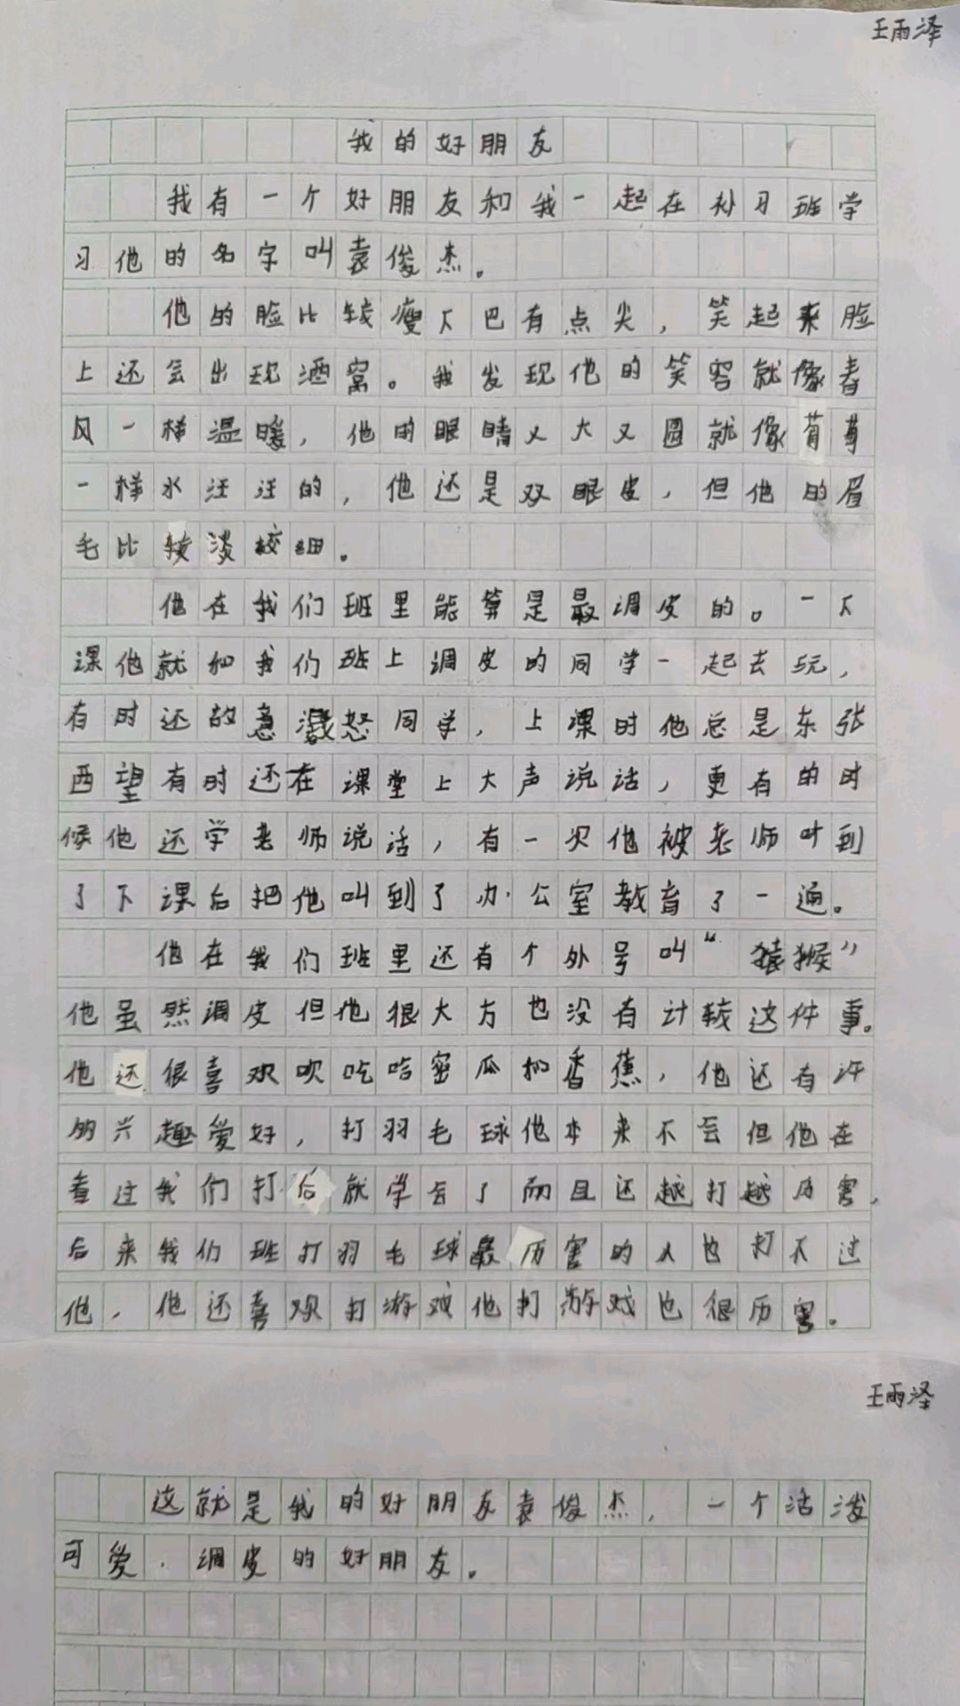 王雨泽
我的好朋友
我有一个好朋友和我一起在补习班学
习他的名字叫袁俊杰。
他的脸比较瘦下巴有点尖，笑起来脸
上还会出现酒窝。我发现他的笑容就像春
风一样温暖，他的眼睛又大又圆就像葡萄
一样水汪汪的，他还是双眼皮，但他的眉
毛比较淡较细。
他在我们班里能算是最调皮的。一下
课他就和我们班上调皮的同学一起去玩，
有时还故意激怒同学，上课时他总是东张
西望有时还在课堂上大声说话，更有的时
候他还学老师说话，有一次他被老师叶到
了下课后把他叫到了办公室教育了一通。
他在我们班里还有个外号叫“猿猴”
他虽然调皮但他很大方也没有计较这件事。
他还很喜欢吹吃哈密瓜和香蕉，他还有许
多兴趣爱好，打羽毛球他本来不会但他在
看过我们打后就学会了而且还越打越厉害，
后来我们班打羽毛球最厉害的人也打不过
他，他还喜欢打游戏他打游戏也很厉害。
王雨泽
这就是我的好朋友袁俊杰，一个活泼
可爱、调皮的好朋友。